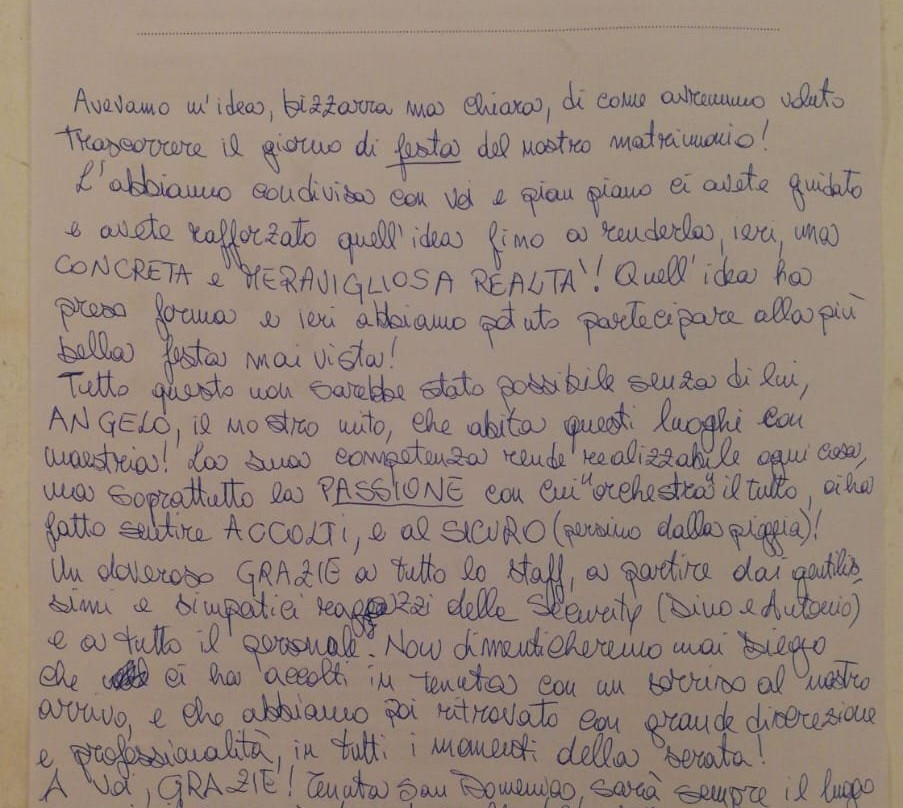 Avevamo un'idea, bizzarra ma chiara, di come avremmo voluto
Trascorrere il giorno di festa del nostro matrimonio!
L'abbiamo condivisa con voi e pian piano ci avete guidato
e avete rafforzato quell'idea fino a renderla, ieri, una
CONCRETA e MERAVIGLIOSA REALTA'! Quell'idea ha
preso forma e ieri abbiamo potuto partecipare alla più
bella festa mai vista!
Tutto questo non sarebbe stato possibile senza di lui,
ANGELO, il nostro mito, che abita questi luoghi con
maestria! La sua competenza rende realizzabile ogni cosa,
ma soprattutto la PASSIONE con cui "orchestra" il tutto, ci ha
fatto sentire ACCOLTI, e al SICURO (persino dalla pioggia)!
Un doveroso GRAZIE a tutto lo staff, a partire dai gentilis
simi e simpatici ragazzi della Security (Dino e Antonio)
e a tutto il personale. Non dimenticheremo mai Diego
che ci ha accolti in tenuta con un sorriso al nostro
arrivo, e che abbiamo poi ritrovato con grande discrezione
e professionalità, in tutti i momenti della serata!
A voi, GRAZIE! Tenuta San Domenico, sarà sempre il luogo